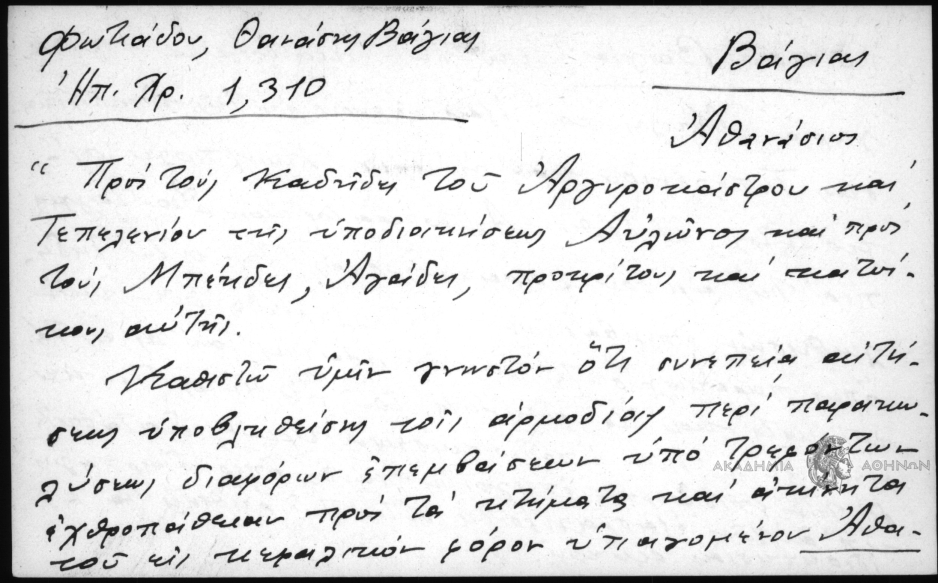 Φωτιάδου, Θανάσης Βάγιας
Ἠπ. Χρ. 1,310
Βάγιας
Ἀθανάσιος
“ Πρός τούς Καδῆδες τοῦ Ἀργυροκάστρου καί
Τεπελενίου τῆς ὑποδιοικήσεως Αὐλῶνος καί πρός
τούς Μπέηδες, Ἀγάδες, προκρίτους και κατοί-
κους αὐτῆς.
Καθιστῶ ὑμῖν γνωστόν ὅτι συνεπείᾳ αἰτή-
σεως ὑποβληθείσης τοῖς ἁρμοδίοις περί παρακω-
λύσεως διαφόρων ἐπεμβάσεων ὑπό τρεφόντων
ἐχθροπάθειαν πρός τά κτήματα καί ἀκίνητα
τοῦ εἰς κεφαλικόν φόρον ὑπαγομένου Ἀθα-
ΑΚΑΔΗΜΙΑ ΑΘΗΝΩΝ